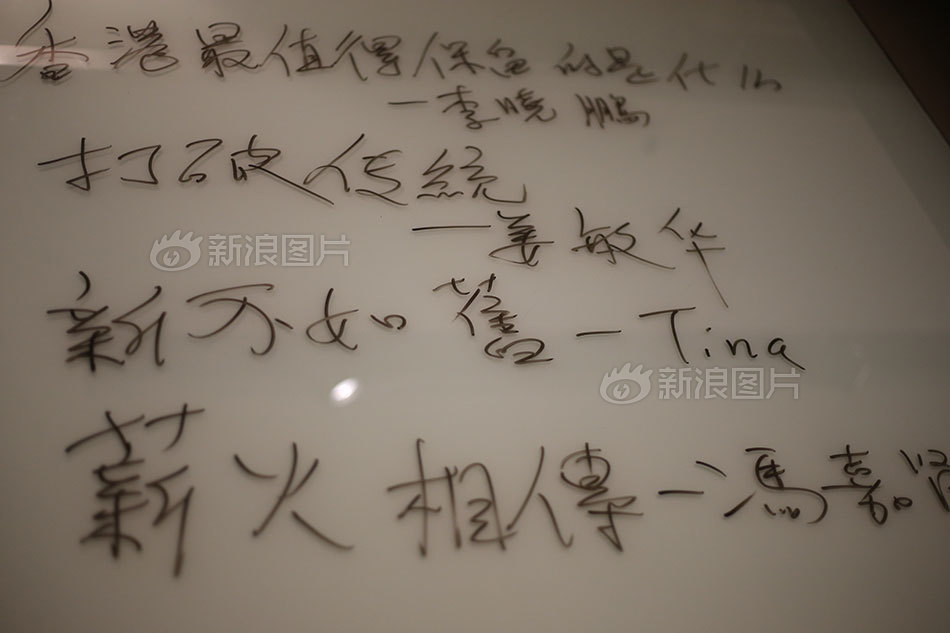 香港最值得保留的是
一李曉鵬
打破传統
一姜敏华
新不如舊一Tina
薪火相傳一馮嘉
新浪图片
新浪图片